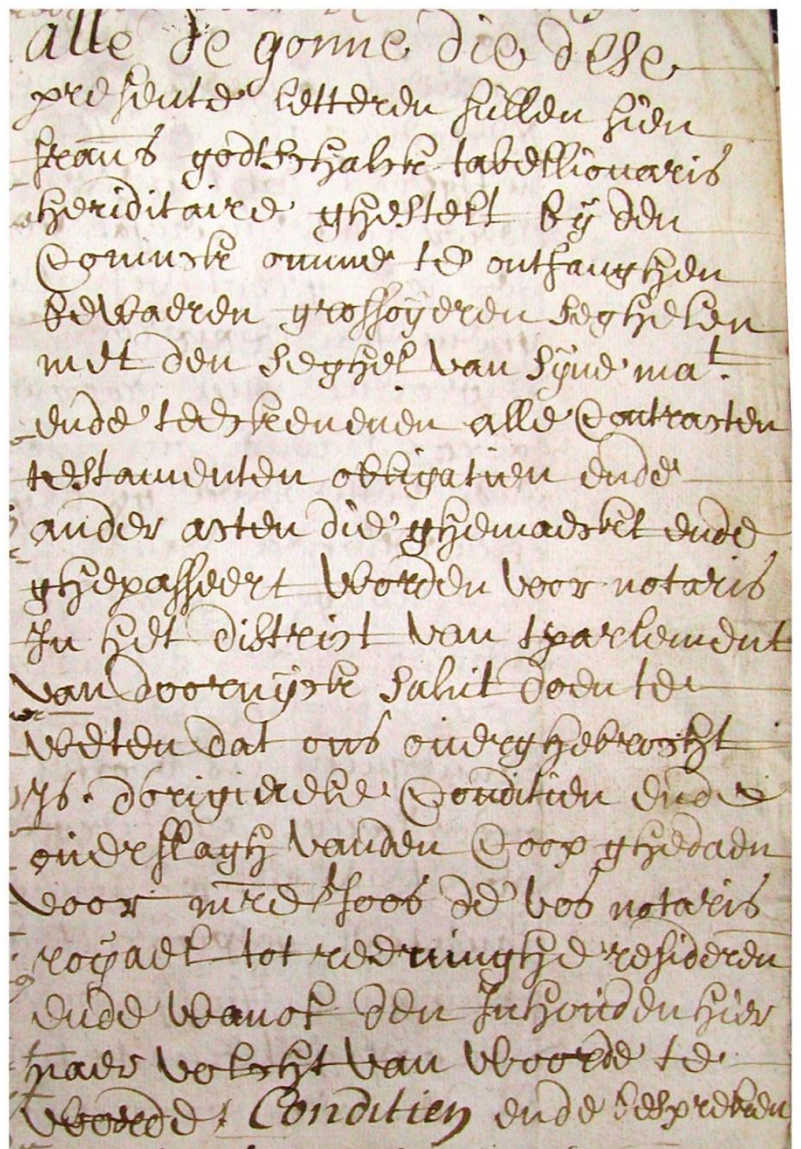 alle de gonne die dese
presente letteren sullen sien
frans godtschalck tabellionaris
heriditaire ghestelt by den
Coninck omme te ontfanghen
bewaeren grossoyeren seghelen
met den seghel van syne mat.
ende teeckenenen alle Contracten
testamenten obligatien ende
ander acten die ghemaeckt ende
ghepasseert worden voor notaris
In het district van tparlement
van doornyck salut doen te
weten dat ons overghebrocht
is. dorigieele Conditien ende
overslagh vanden Coop ghedaen
voor mre Joos de vos notaris
royael tot reninghe resideren
ende wanof den Inhouden hier
naer volcht van woorde te
woorde Conditien ende bespreken